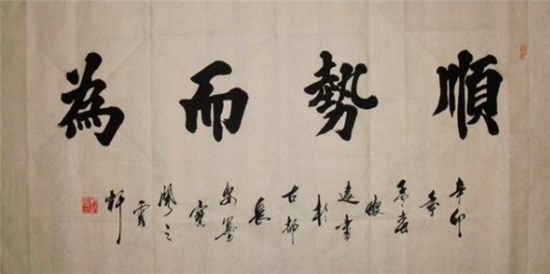 順勢而為
辛卯
年
孟春
遠書
於
古都
長
安墨
寶
閣之
軒